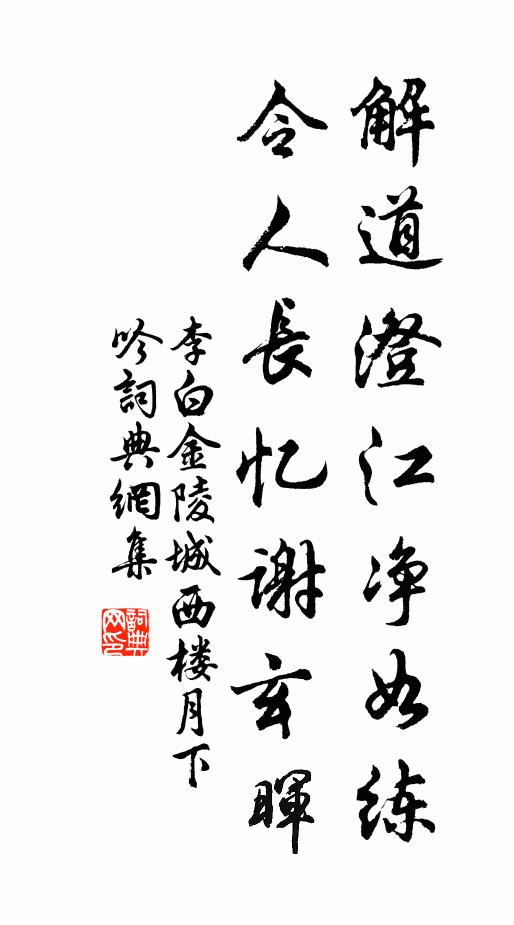 解道澄江净如练
令人長忆谢玄暉
李白金陵城西楼月下
吟詞典網集
詞典網印